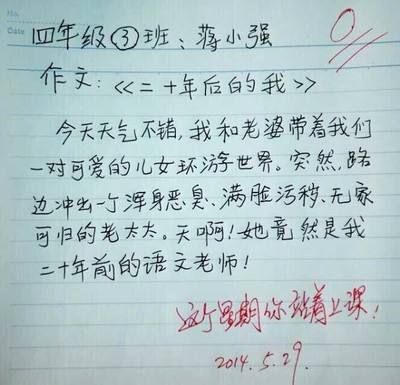 No.
Date
四年级③班、蒋小强
0
作文:《二十年后的我》
今天天气不错,我和老婆带着我们
一对可爱的儿女环游世界。突然,路
边冲出一个浑身恶臭、满脸污秽、无家
可归的老太太。天啊!她竟然是我
二十年前的语文老师!
这个星期你站着上课!
2014.5.29.